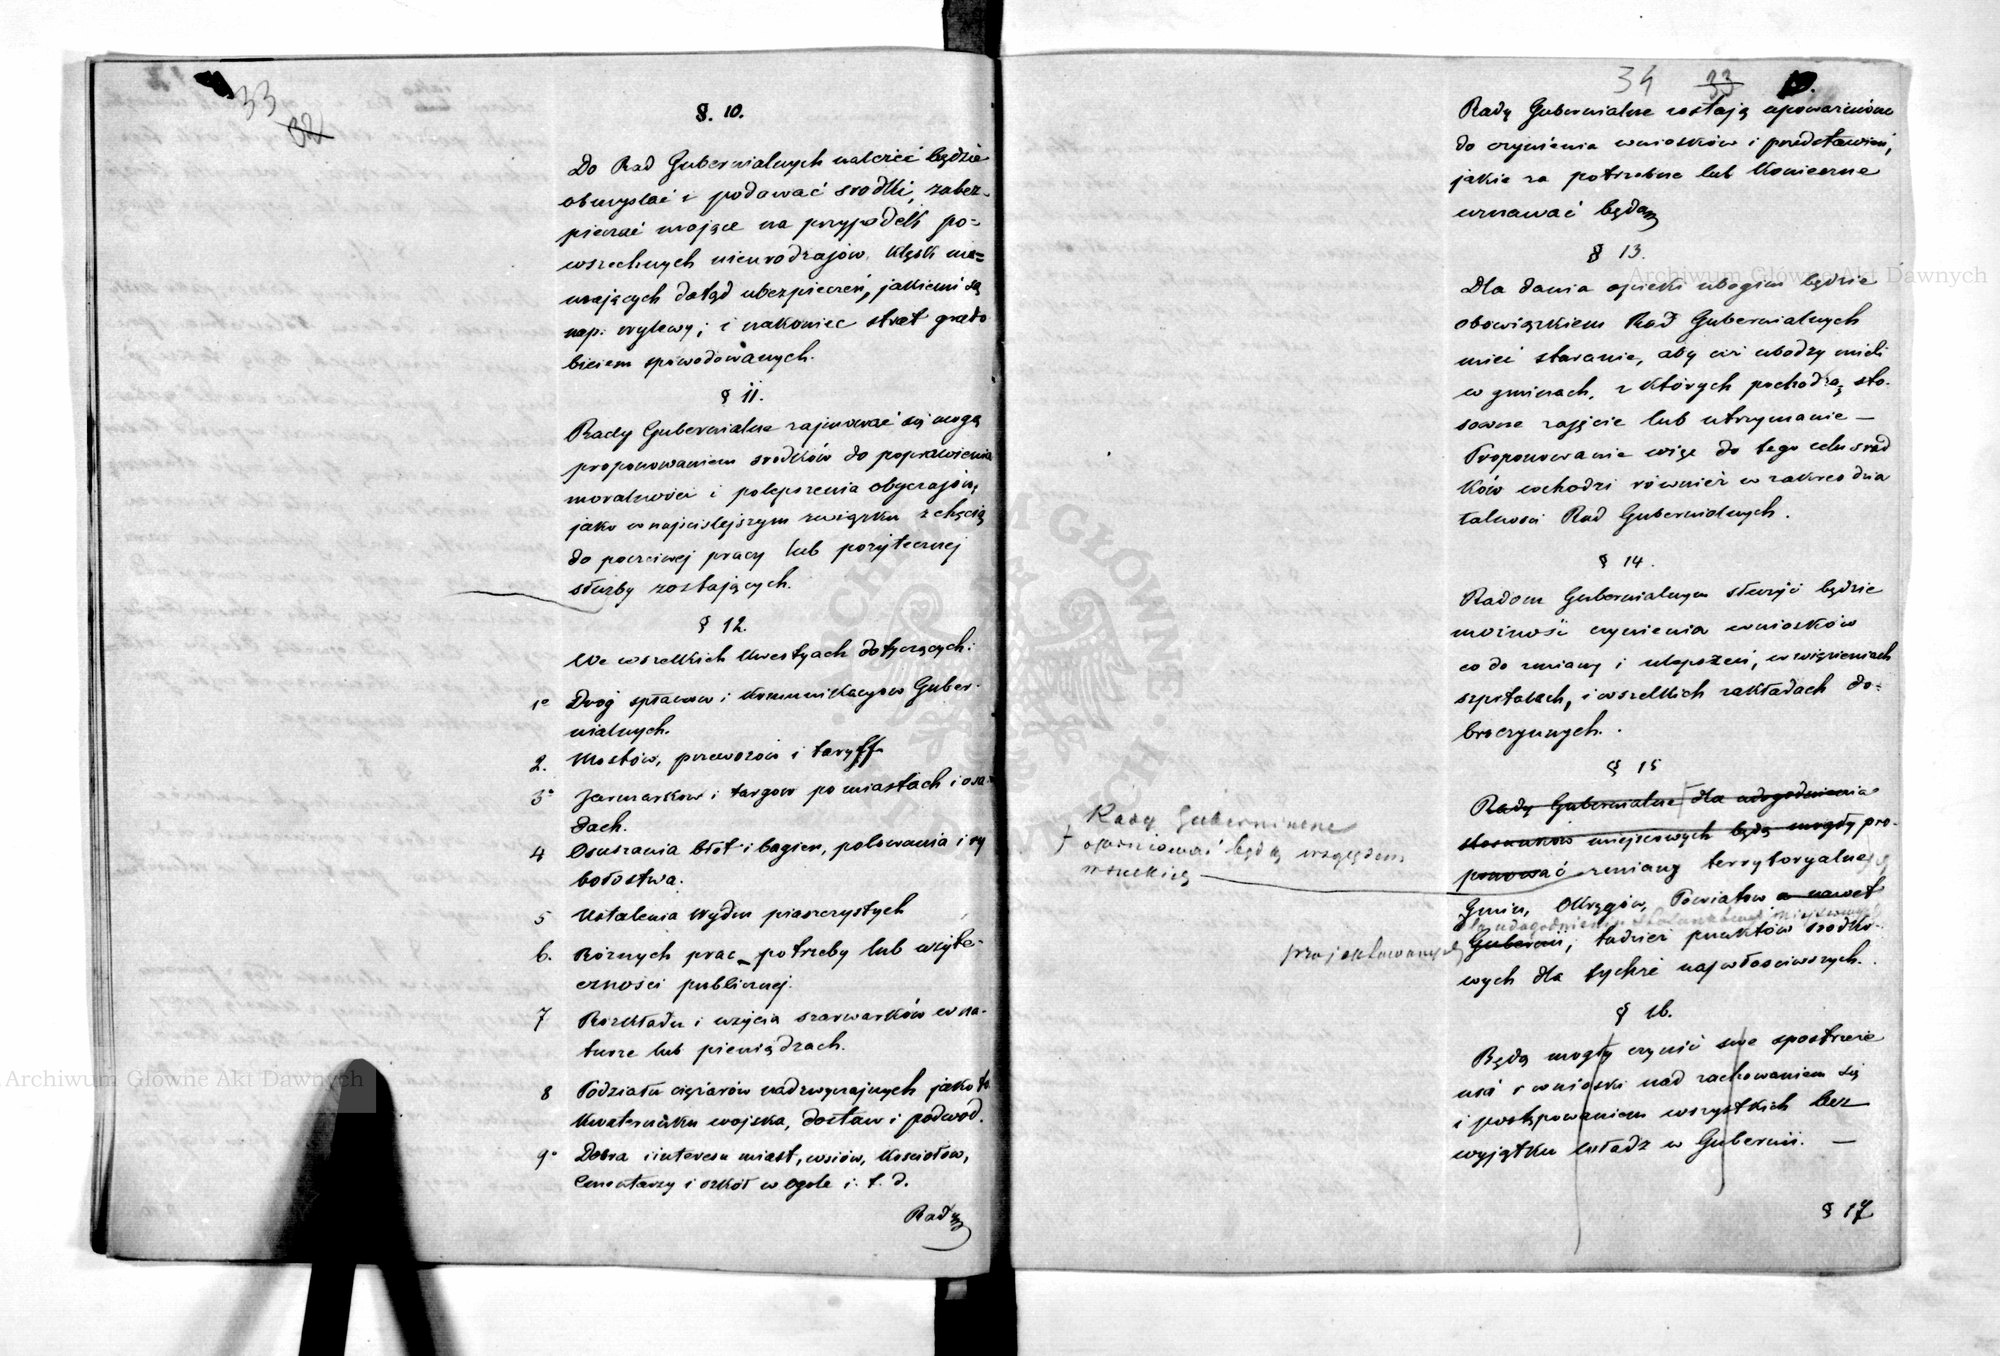 33
32
§. 10.
Do Rad Gubernialnych należeć będzie
obmyślać i podawać srodki, zabez-
pieczać mające na przypadek po=
wszechnych nieurodzajów, klęsk nie=
mających dotąd ubezpieczeń, jakiemi są
nap: wylewy; i nakoniec strat grado
biciem spowodowanych.
§ 11.
Rady Gubernialne zajmować się mogą
proponowaniem srodków do poprawienia
moralności i polepszenia obyczajów,
jako w najściślejszym związku z chęcią
do poczciwej pracy lub pożytecznej
służby zostających.
§ 12.
We wszelkich kwestyach dotyczących:
1° Dróg spławow i kommunikacyow Guber-
nialnych.
2. Mostów, przewozów i taryff
3° Jarmarkow i targow po miastach i osa-
dach.
4 Osuszania błot i bagien, polowania i ry
bołostwa.
5 Ustalenia wydm piaszczystych
6. Różnych prac potrzeby lub użyte-
czności publicznej.
7 Rozkładu i użycia szarwarków w na-
turze lub pieniądzach.
8 Podziału ciężarów nadzwyczajnych jako to
kwaterunku wojska, dostaw i podwod.
9° Dobra i interesu miast, wsiów, kosciołów,
Cmentarzy i szkół w ogole i. t. d.
Rady
34 33
Rady Gubernialne zostają upoważnione
do czynienia wniosków i przedstawień,
jakie za potrzebne lub konieczne
uznawać będą
§ 13.
Dla dania opieki ubogim będzie
obowiązkiem Rad Gubernialnych
mieć staranie, aby ciż ubodzy mieli
w gminach, z których pochodzą, sto-
sowne zajęcie lub utrzymanie —
Proponowanie więc do tego celu srod
ków wchodzi również w zakres dzia
łalności Rad Gubernialnych.
§ 14.
Radom Gubernialnym służyć będzie
możność czynienia wniosków
co do zmiany i ulepszeń, w więzieniach
szpitalach, i wszelkich zakładach do-
broczynnych.
§ 15
Rady Gubernialne dla udogodnienia
stosunków miejscowych będą mogły pro-
ponować zmiany terrytoryalne
Rady Gubernialne
opiniować będą względem
wszelkiej
Gmin, Okręgów, Powiatow a nawet
dla udogodnienia stosunkow miejscowych
Gubernii, tudzież punktów srodko-
projektowanych
wych dla tychże najwłościwszych.
§ 16.
Będą mogły czynić swe spostrzeże
nia i wnioski nad zachowaniem się
i postępowaniem wszystkich bez
wyjątku władz w Gubernii. —
§ 17
Archiwum Główne Akt Dawnych
Archiwum Główne Akt Dawnych